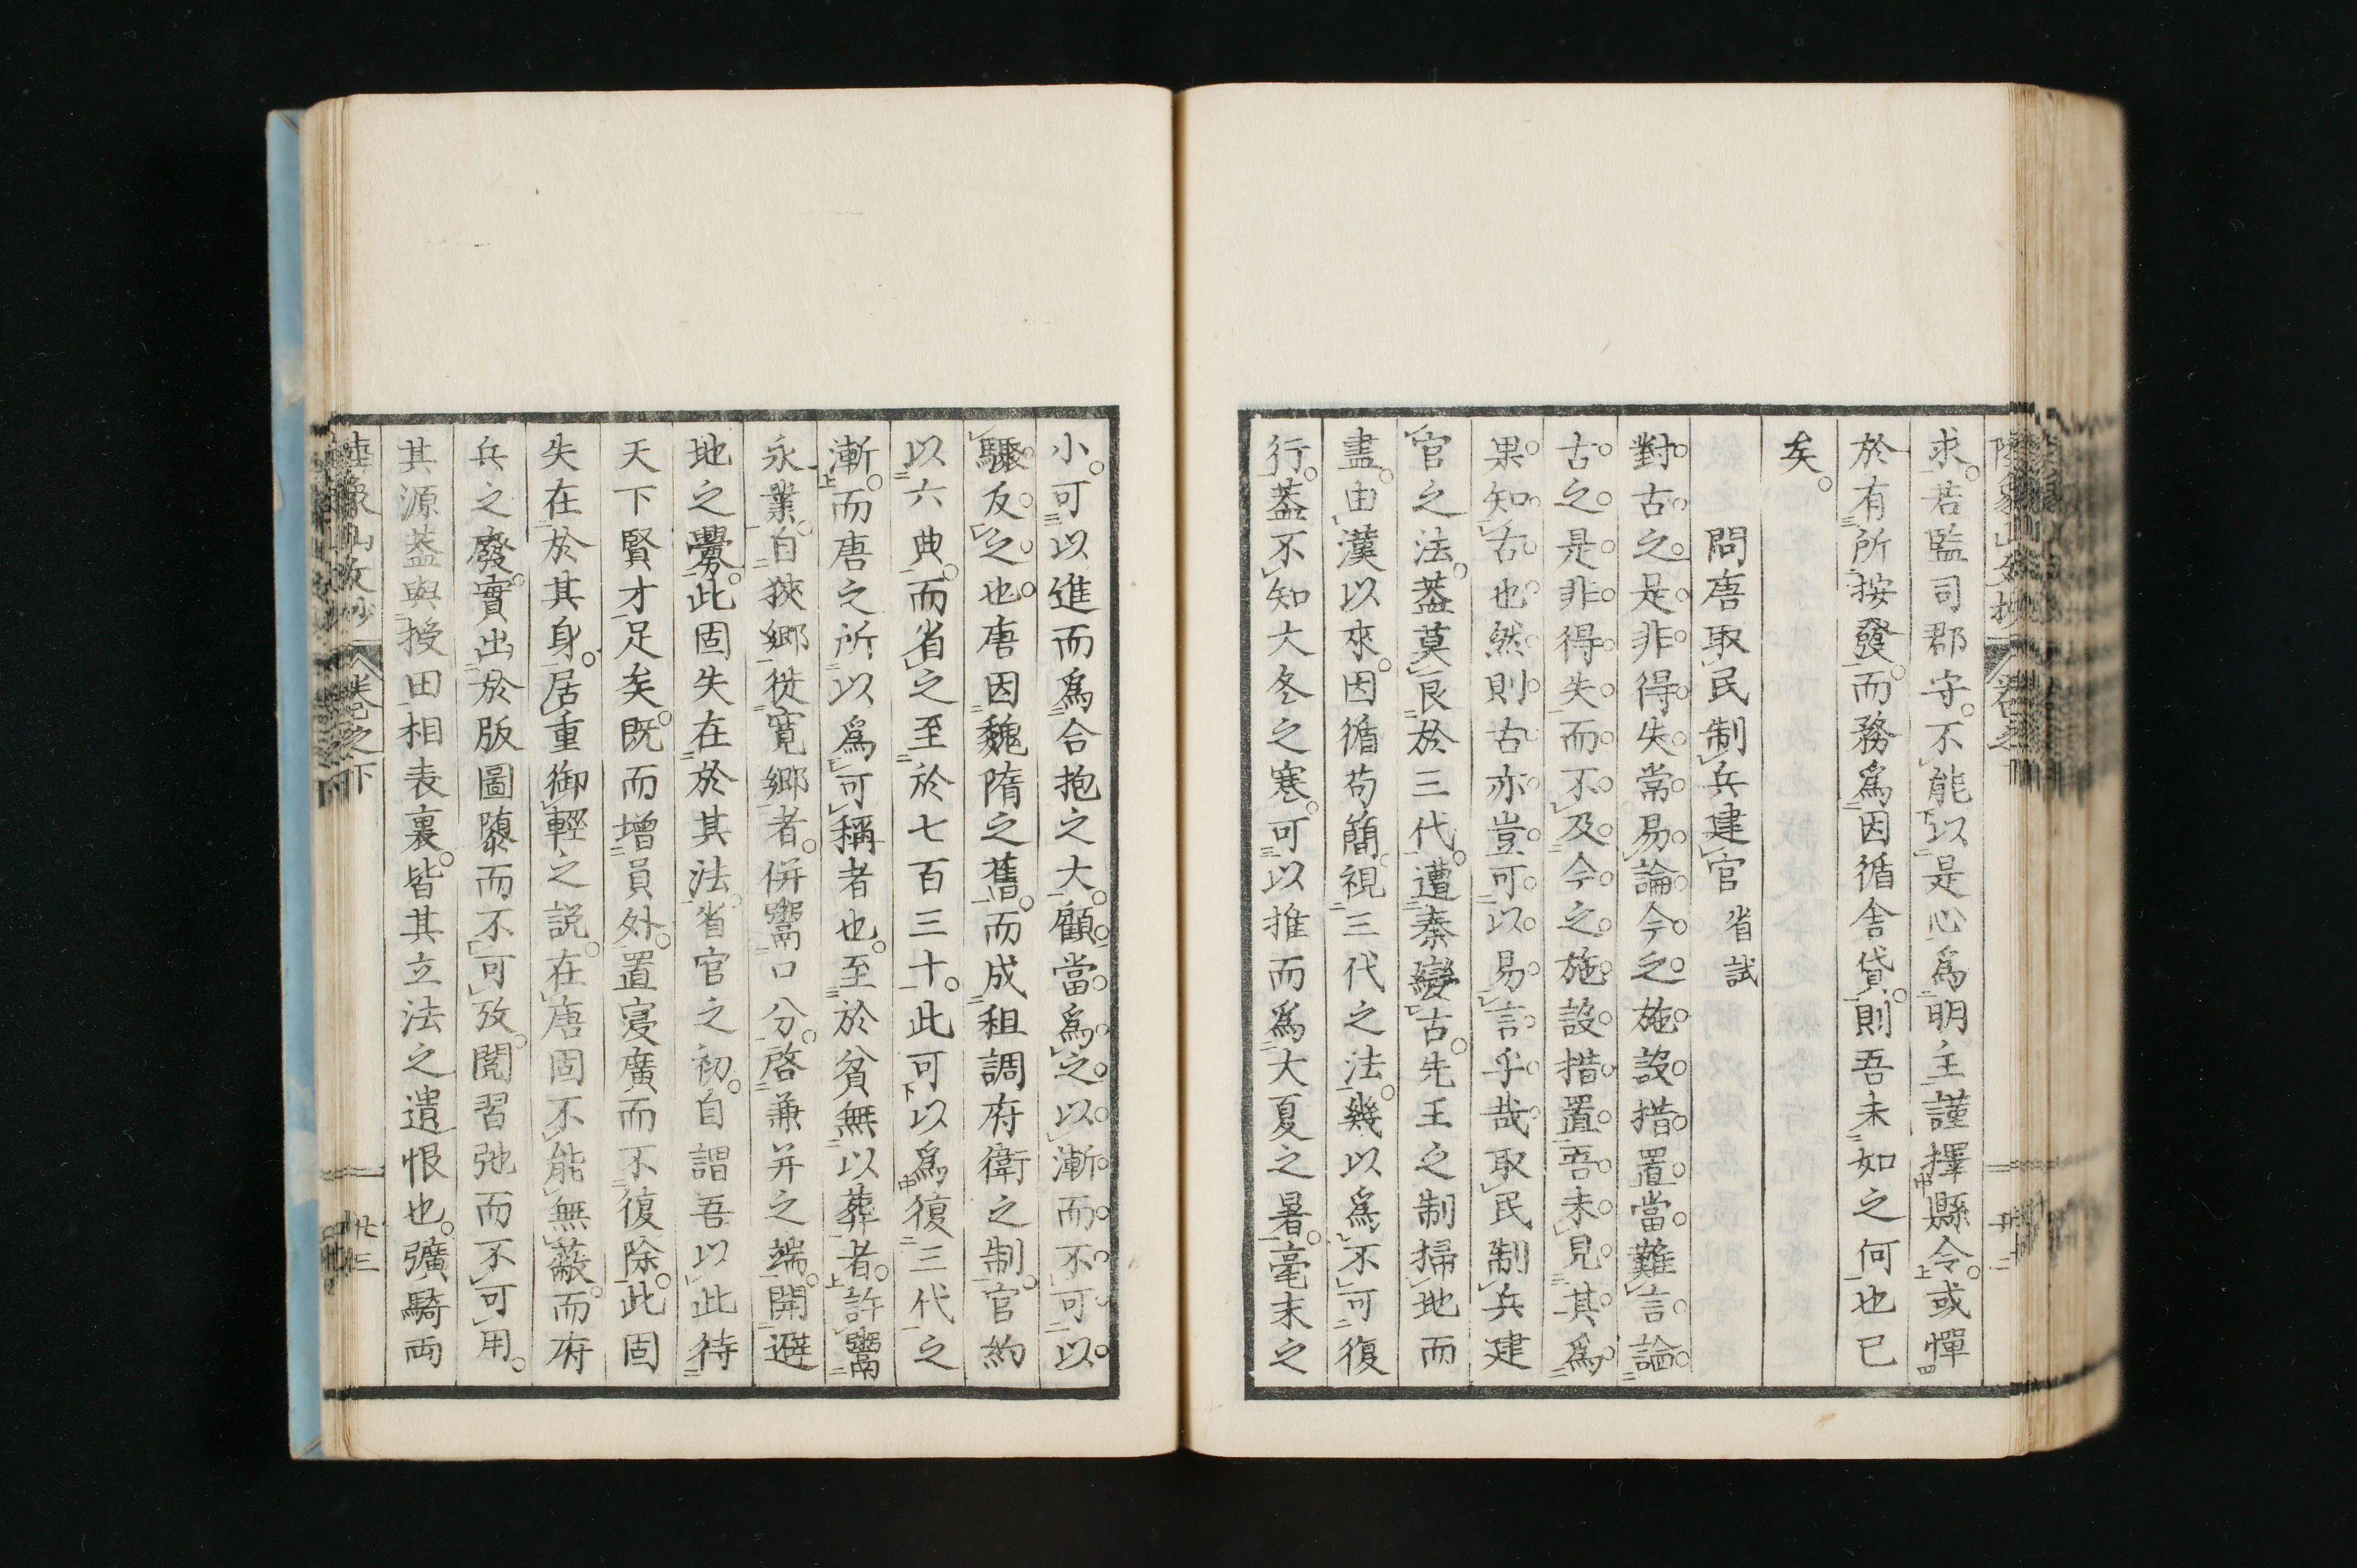 求若監司郡守不能以是心爲明主謹擇縣令或憚
於有所按發而務爲因循舎貸則吾未如之何也已
矣
問唐取民制兵建官 省試
對古之是非得失常易論今之施設措置當難言論
古之是非得失而不及今之施設措置吾未見其爲
果知古也然則古亦豈可以易言乎哉取民制兵建
官之法葢莫良於三代遭秦變古先王之制掃地而
盡由漢以來因循苟簡視三代之法幾以爲不可復
行葢不知大冬之寒可以推而爲大夏之暑毫末之
小可以進而爲合抱之大顧當爲之以漸而不可以
驟反之也唐因魏隋之舊而成租調府衛之制官約
以六典而省之至於七百三十此可以爲復三代之
漸而唐之所以爲可稱者也至於貧無以葬者許鬻
永業自狹郷徙寛郷者併鬻口分啓兼并之端開避
地之釁此固失在於其法省官之初自謂吾以此待
天下賢才足矣既而増員外置寖廣而不復除此固
失在於其身居重御輕之説在唐固不能無蔽而府
兵之廢實出於版圖隳而不可攷閲習弛而不可用
其源葢與授田相表裏皆其立法之遺恨也彍騎兩
陸象山文抄 卷之下 廿三